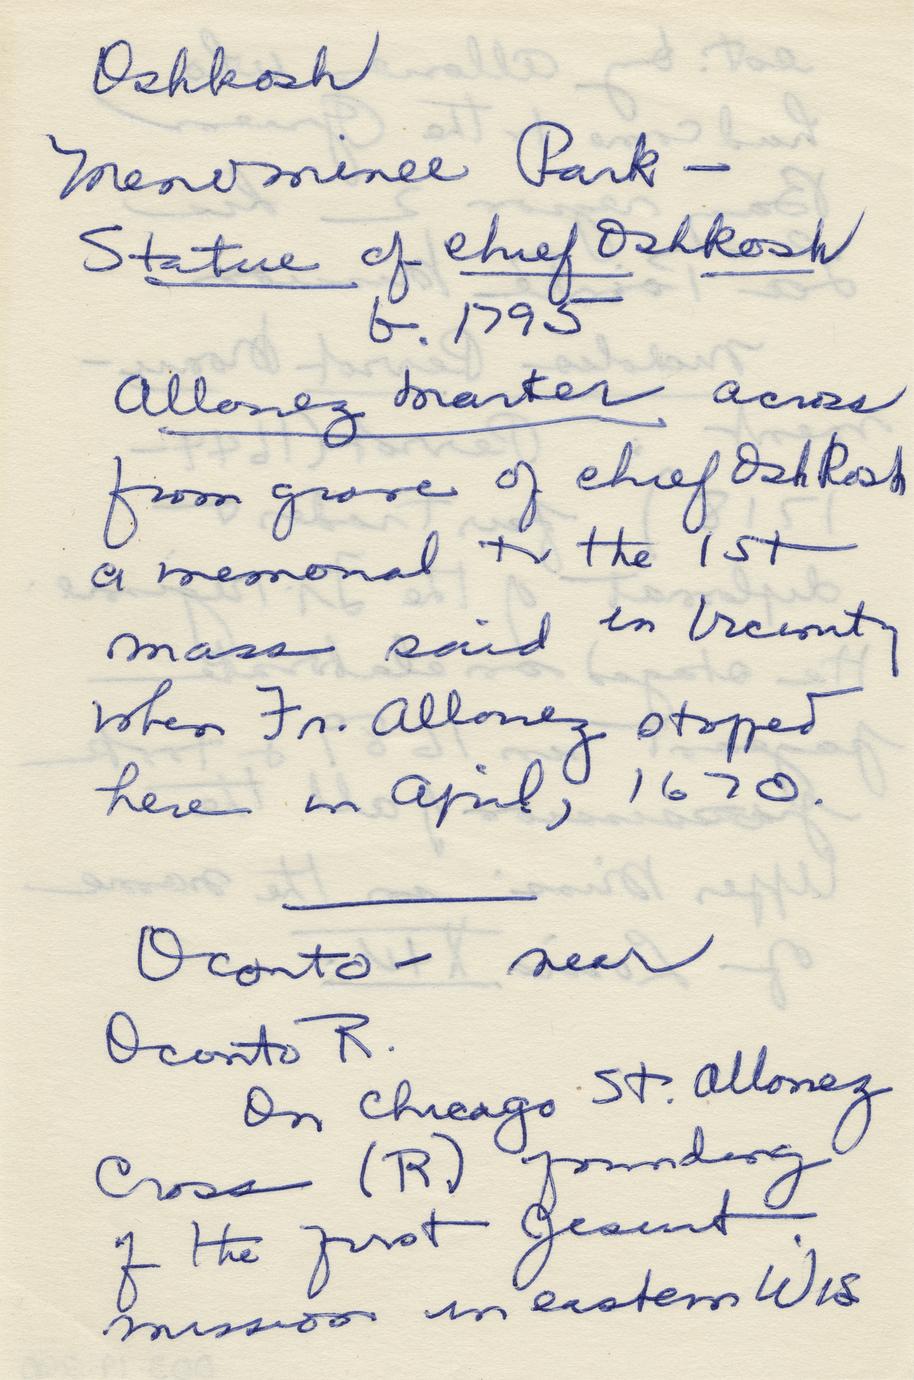 Oshkosh
Menominee Park –
Statue of Chief Oshkosh
b. 1795
Allouez marker across
from grave of Chief Oshkosh
a memorial to the 1st
mass said in vicinity
when Fr. Allouez stopped
here in April, 1670.
Oconto – near
Oconto R.
On Chicago St. Allouez
Cross (R.) founding
of the first Jesuit
mission in eastern Wis